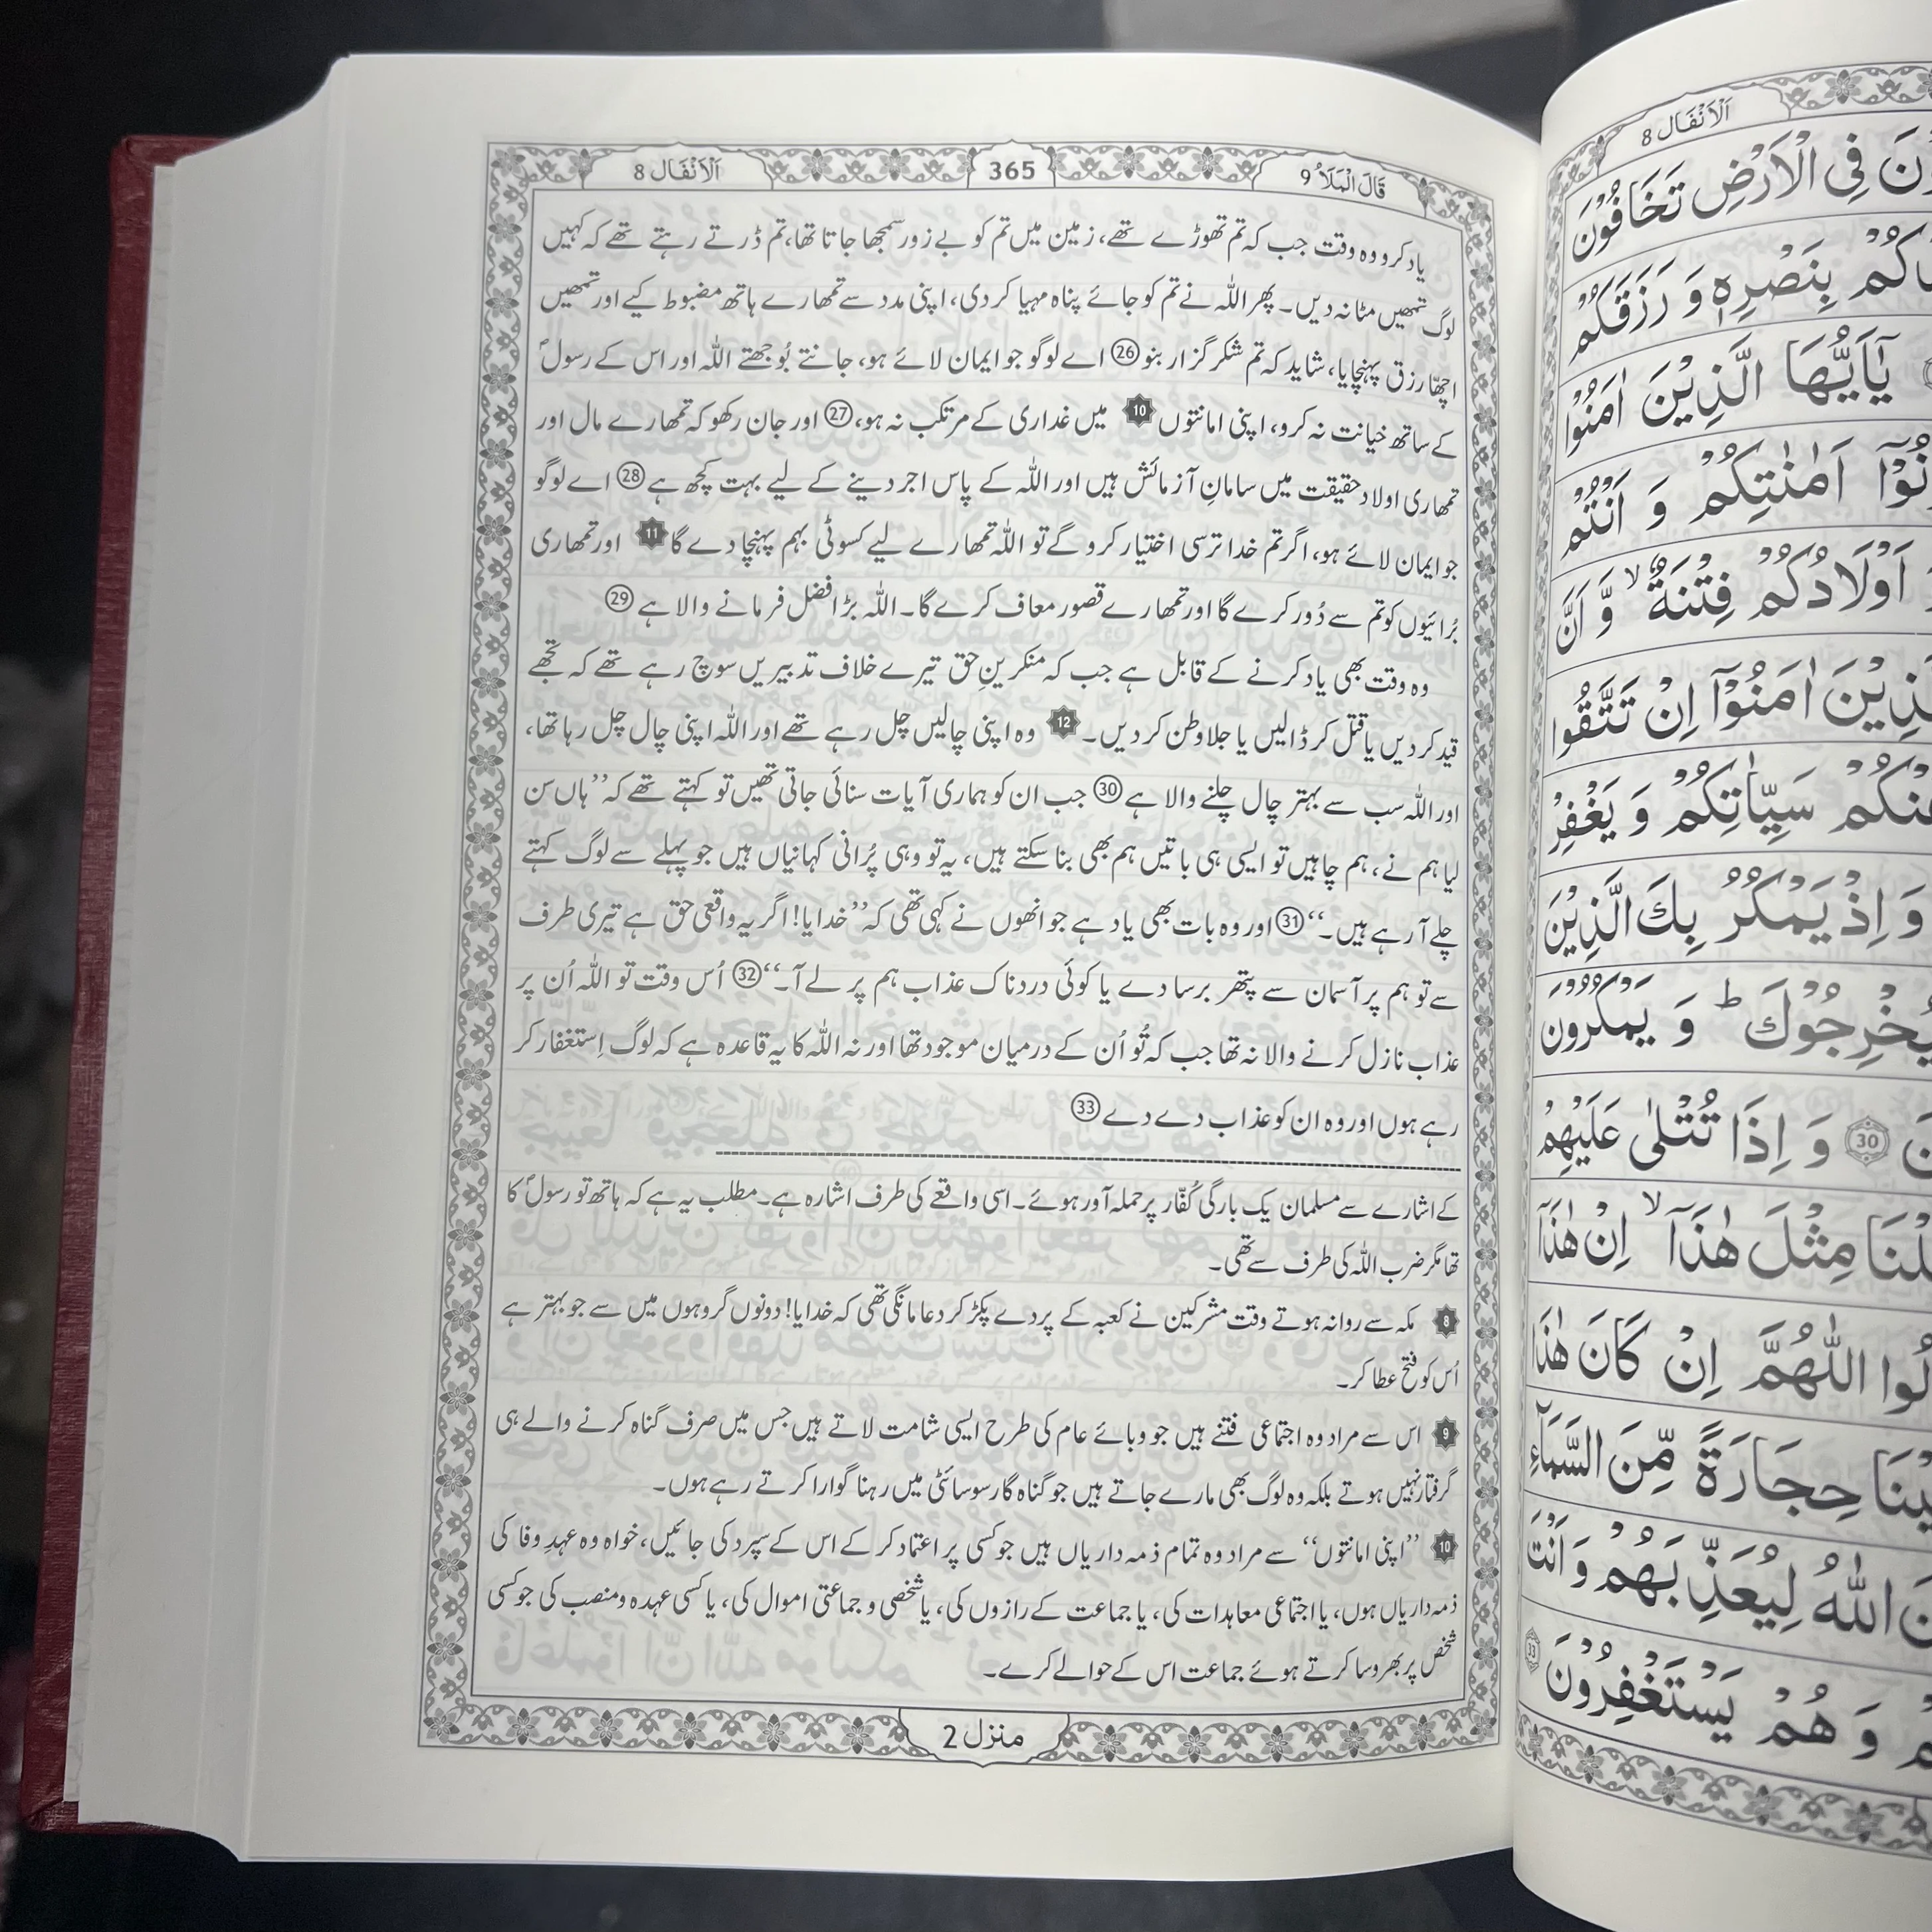 قَالَ الْمَلَاُ 9
365
اَلْاَنْفَال 8
یاد کرو وہ وقت جب کہ تم تھوڑے تھے، زمین میں تم کو بے زور سمجھا جاتا تھا، تم ڈرتے رہتے تھے کہ کہیں
لوگ تمھیں مٹا نہ دیں۔ پھر اللہ نے تم کو جائے پناہ مہیا کر دی، اپنی مدد سے تمھارے ہاتھ مضبوط کیے اور تمھیں
اچھا رزق پہنچایا، شاید کہ تم شکر گزار بنو 26 اے لوگو جو ایمان لائے ہو، جانتے بُوجھتے اللہ اور اس کے رسولؐ
کے ساتھ خیانت نہ کرو، اپنی امانتوں 10 میں غداری کے مرتکب نہ ہو، 27 اور جان رکھو کہ تمھارے مال اور
تمھاری اولاد حقیقت میں سامانِ آزمائش ہیں اور اللہ کے پاس اجر دینے کے لیے بہت کچھ ہے 28 اے لوگو
جو ایمان لائے ہو، اگر تم خدا ترسی اختیار کرو گے تو اللہ تمھارے لیے کسوٹی بہم پہنچا دے گا 11 اور تمھاری
بُرائیوں کو تم سے دُور کرے گا اور تمھارے قصور معاف کرے گا۔ اللہ بڑا فضل فرمانے والا ہے 29
وہ وقت بھی یاد کرنے کے قابل ہے جب کہ منکرینِ حق تیرے خلاف تدبیریں سوچ رہے تھے کہ تجھے
قید کر دیں یا قتل کر ڈالیں یا جلا وطن کر دیں۔ 12 وہ اپنی چالیں چل رہے تھے اور اللہ اپنی چال چل رہا تھا،
اور اللہ سب سے بہتر چال چلنے والا ہے 30 جب ان کو ہماری آیات سنائی جاتی تھیں تو کہتے تھے کہ ’’ہاں سن
لیا ہم نے، ہم چاہیں تو ایسی ہی باتیں ہم بھی بنا سکتے ہیں، یہ تو وہی پُرانی کہانیاں ہیں جو پہلے سے لوگ کہتے
چلے آ رہے ہیں۔‘‘ 31 اور وہ بات بھی یاد ہے جو انھوں نے کہی تھی کہ ’’خدایا! اگر یہ واقعی حق ہے تیری طرف
سے تو ہم پر آسمان سے پتھر برسا دے یا کوئی دردناک عذاب ہم پر لے آ۔‘‘ 32 اُس وقت تو اللہ اُن پر
عذاب نازل کرنے والا نہ تھا جب کہ تُو اُن کے درمیان موجود تھا اور نہ اللہ کا یہ قاعدہ ہے کہ لوگ اِستغفار کر
رہے ہوں اور وہ ان کو عذاب دے دے 33
کے اشارے سے مسلمان یک بارگی کُفّار پر حملہ آور ہوئے۔ اسی واقعے کی طرف اشارہ ہے۔ مطلب یہ ہے کہ ہاتھ تو رسولؐ کا
تھا مگر ضرب اللہ کی طرف سے تھی۔
8 مکہ سے روانہ ہوتے وقت مشرکین نے کعبہ کے پردے پکڑ کر دعا مانگی تھی کہ خدایا! دونوں گروہوں میں سے جو بہتر ہے
اُس کو فتح عطا کر۔
9 اس سے مراد وہ اجتماعی فتنے ہیں جو وبائے عام کی طرح ایسی شامت لاتے ہیں جس میں صرف گناہ کرنے والے ہی
گرفتار نہیں ہوتے بلکہ وہ لوگ بھی مارے جاتے ہیں جو گناہ گار سوسائٹی میں رہنا گوارا کرتے رہے ہوں۔
10 ’’اپنی امانتوں‘‘ سے مراد وہ تمام ذمہ داریاں ہیں جو کسی پر اعتماد کر کے اس کے سپرد کی جائیں، خواہ وہ عہدِ وفا کی
ذمہ داریاں ہوں، یا اجتماعی معاہدات کی، یا جماعت کے رازوں کی، یا شخصی و جماعتی اموال کی، یا کسی عہدہ و منصب کی جو کسی
شخص پر بھروسا کرتے ہوئے جماعت اس کے حوالے کرے۔
منزل 2
اَلْاَنْفَال 8
فِي الْاَرْضِ تَخَافُوْنَ
بِنَصْرِهٖ وَ رَزَقَكُمْ
يٰٓاَيُّهَا الَّذِيْنَ اٰمَنُوْا
اَمٰنٰتِكُمْ وَ اَنْتُمْ
اَوْلَادُكُمْ فِتْنَةٌ ۙ وَّ اَنَّ
اٰمَنُوْٓا اِنْ تَتَّقُوا
سَيِّاٰتِكُمْ وَ يَغْفِرْ
وَ اِذْ يَمْكُرُ بِكَ الَّذِيْنَ
يُخْرِجُوْكَ ؕ وَ يَمْكُرُوْنَ
30 وَ اِذَا تُتْلٰى عَلَيْهِمْ
مِثْلَ هٰذَآ ۙ اِنْ هٰذَآ
اللّٰهُمَّ اِنْ كَانَ هٰذَا
حِجَارَةً مِّنَ السَّمَآءِ
اللّٰهُ لِيُعَذِّبَهُمْ وَ اَنْتَ
وَ هُمْ يَسْتَغْفِرُوْنَ 33